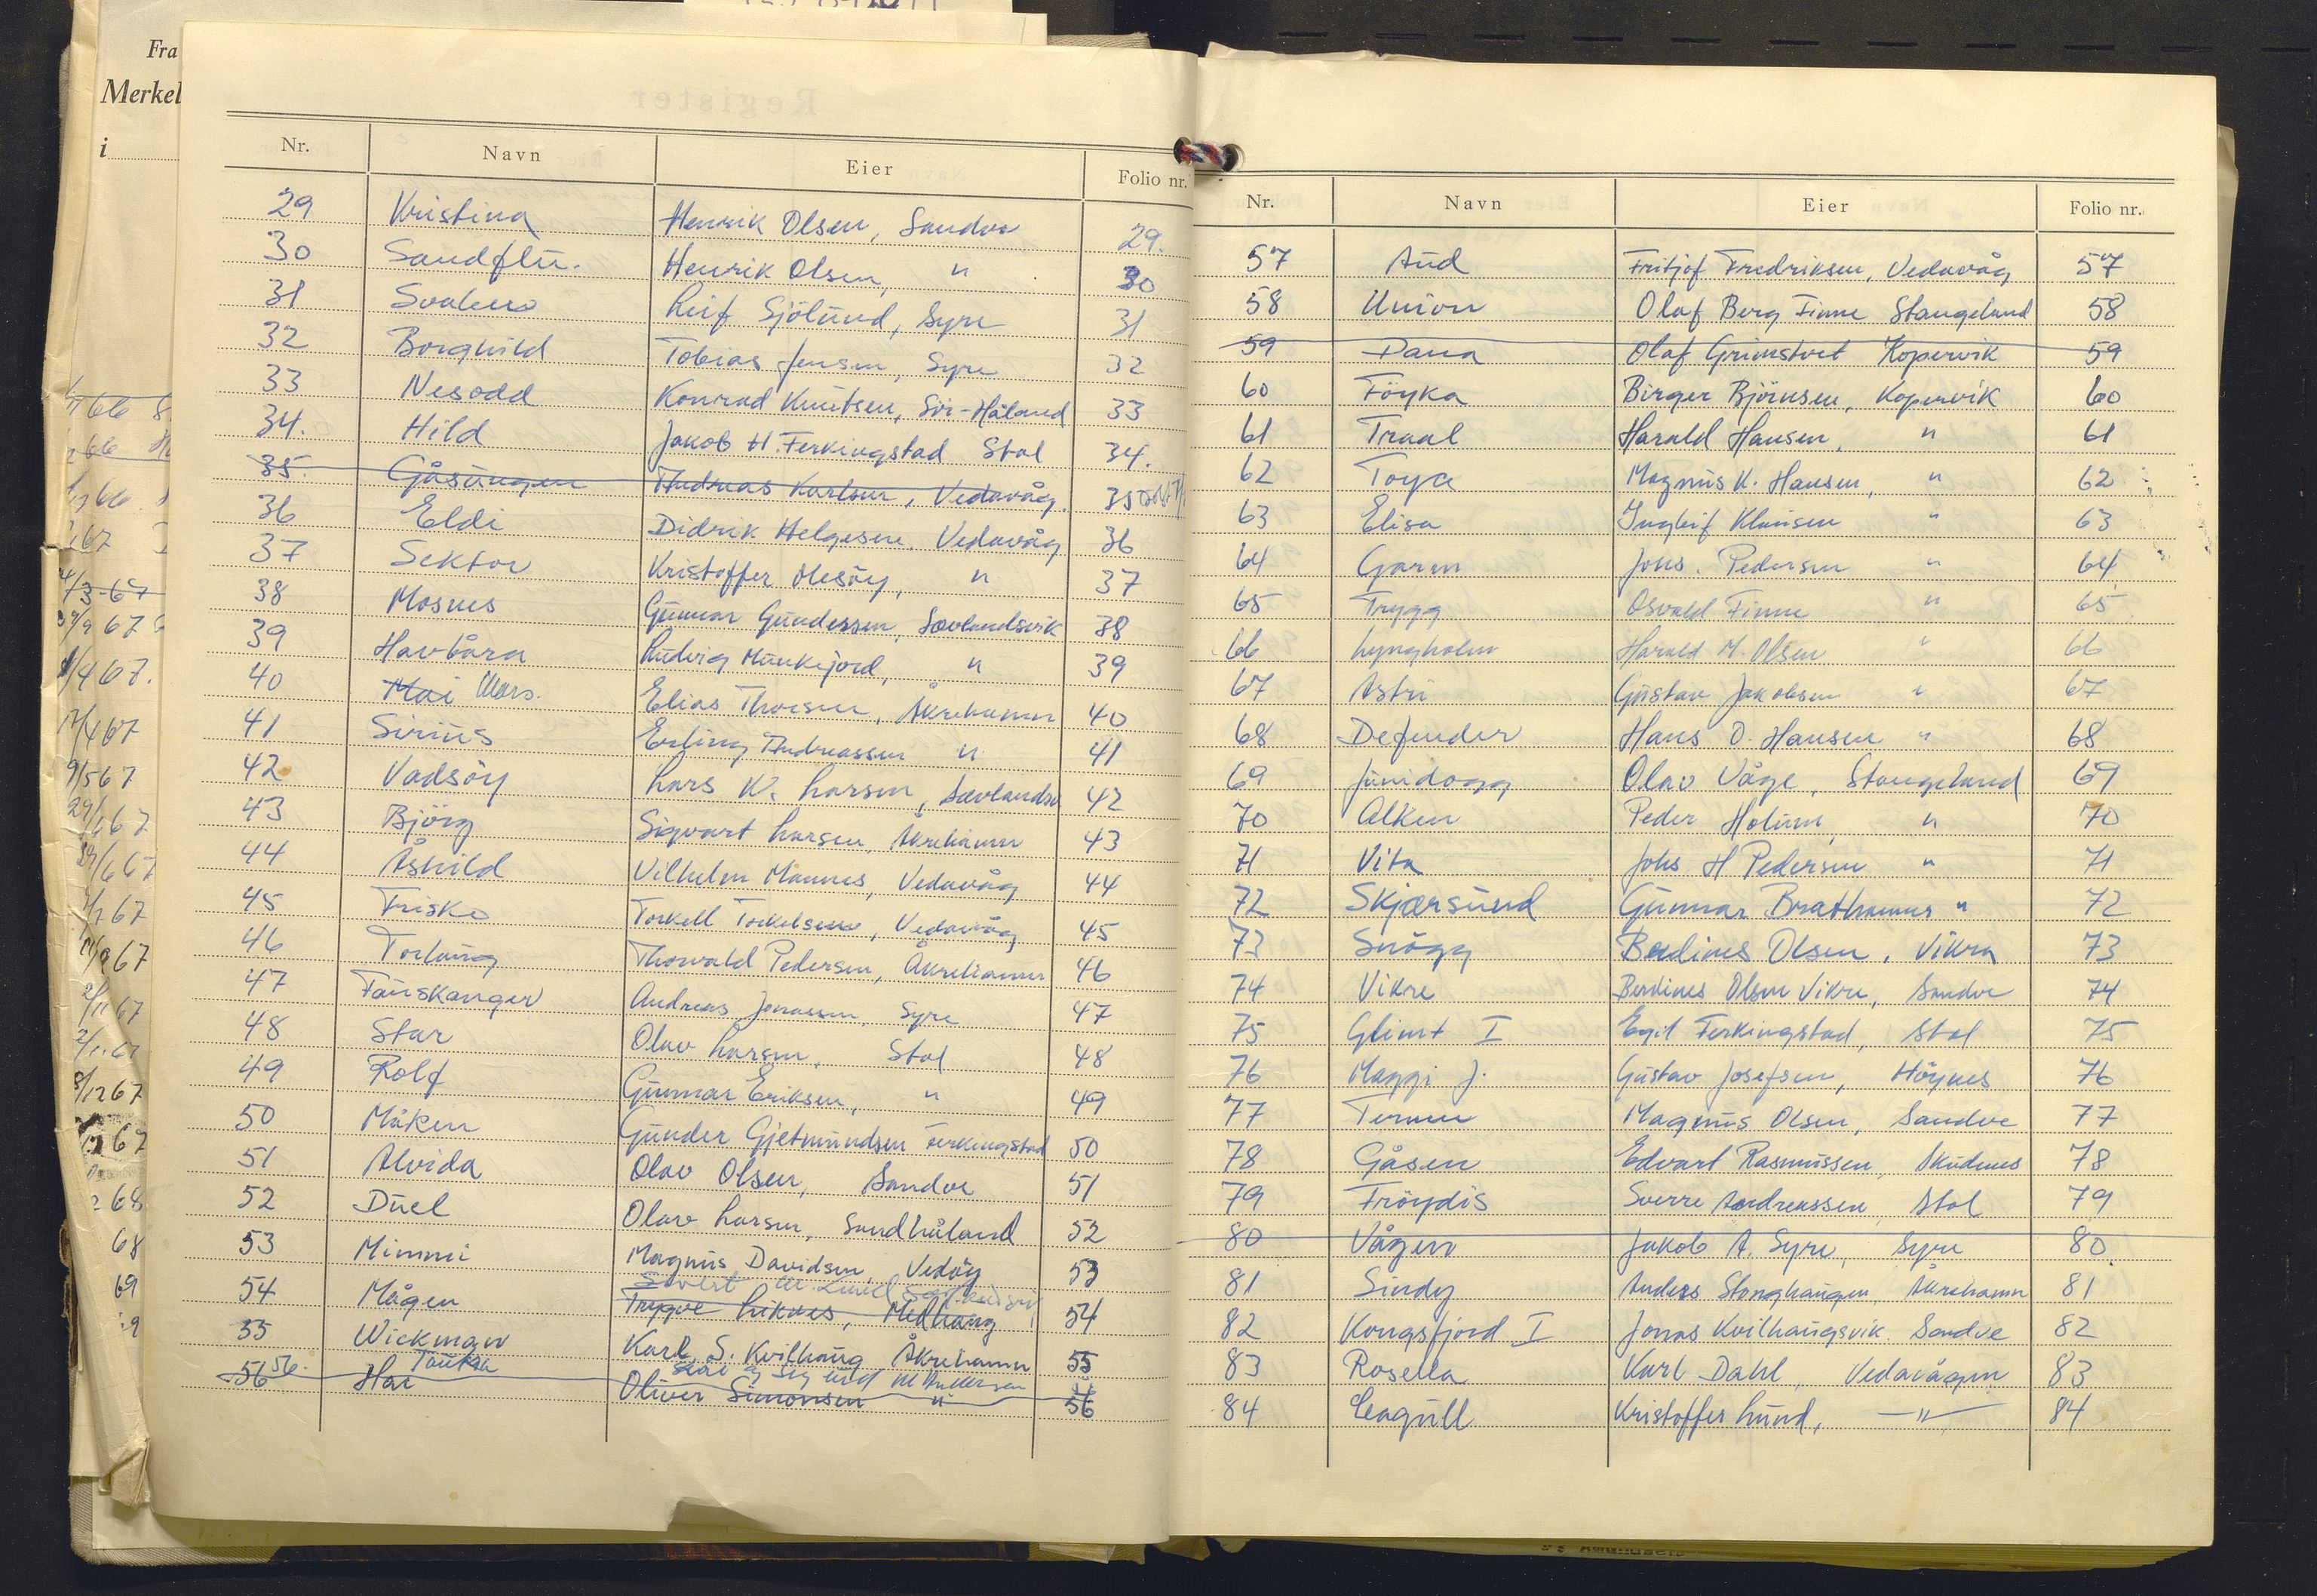 Fra
Merkel
i
Nr. Navn Eier Folio nr.
29 Kristina Henrik Olsen, Sandve 29.
30 Henrik Olsen, " 30
31 Leif Sjölund, Syre 31
32 Borghild Tobias Jensen, Syre 32
33 Nesodd Konrad Knutsen, Sör-Håland 33
34. Hild Jakob H. Ferkingstad Stol 34.
35. Gåsungen Andreas Karlsen, Vedavåg. 35
36 Eldi Didrik Helgesen, Vedavåg 36
37 Sektor Kristoffer Olesöy, " 37
38 Mosnes Gunnar Gundersen, Sævlandsvik 38
39 Havbåra Ludvig Munkejord, " 39
40 Mai Mars. Elias Thorsen, Åkrehamn 40
41 Sirius Erling Andreassen " 41
42 Vadsöy Lars K. Larsen, Sævlandsv 42
43 Björg Sigvart Larsen, Åkrehamn 43
44 Åshild Vilhelm Mannes, Vedavåg 44
45 Frisko Torkell Torkelsen, Vedavåg 45
46 Torlaug Thorvald Pedersen, Åkrehamn 46
47 Fauskanger Andreas Jonassen, Syre 47
48 Star Olav Larsen, Stol 48
49 Rolf Gunnar Eriksen, " 49
50 Måken Gunder Gjetmundsen Ferkingstad 50
51 Alvida Olav Olsen, Sandve 51
52 Duel Olav Larsen, Sandhåland 52
53 Mimmi Magnus Davidsen, Vedöy 53
54 Mågen Trygve Liknes, Medhaug 54
55 Wickman Karl S. Kvilhaug Åkrehamn 55
56.
56 Hai Oliver Simonsen " 56
Nr. Navn Eier Folio nr.
57 Aud Fritjof Fredriksen, Vedavåg 57
58 Union Olaf Berg Finne Stangeland 58
59 Dana Olaf Grimstvet Kopervik 59
60 Föyka Birger Björnsen, Kopervik 60
61 Traal Harald Hansen, " 61
62 Toya Magnus K. Hansen, " 62
63 Elisa Ingleif Klausen " 63
64 Garm Johs. Pedersen " 64
65 Trygg Osvald Finne " 65
66 Lyngholm Harald M. Olsen " 66
67 Astri Gustav Jakobsen " 67
68 Defender Hans O. Hansen " 68
69 Junidogg Olav Våge, Stangeland 69
70 Alken Peder Holum, " 70
71 Vita Johs H Pedersen " 71
72 Skjærsund Gunnar Brathammer " 72
73 Snögg Berdines Olsen, Vikra 73
74 Vikre Berdines Olsen Vikre, Sandve 74
75 Glimt I Egil Ferkingstad, Stol 75
76 Maggi J. Gustav Josefsen, Höynes 76
77 Ternen Magnus Olsen, Sandve 77
78 Gåsen Edvart Rasmussen, Skudnes 78
79 Fröydis Sverre Andreassen, Stol 79
80 Vågen Jakob A. Syre, Syre 80
81 Sindy Anders Stonghaugen, Åkrehamn 81
82 Kongsfjord I Jonas Kvilhaugsvik Sandve 82
83 Rosella Karl Dahl, Vedavågen 83
84 Seagull Kristoffer Lund, " 84